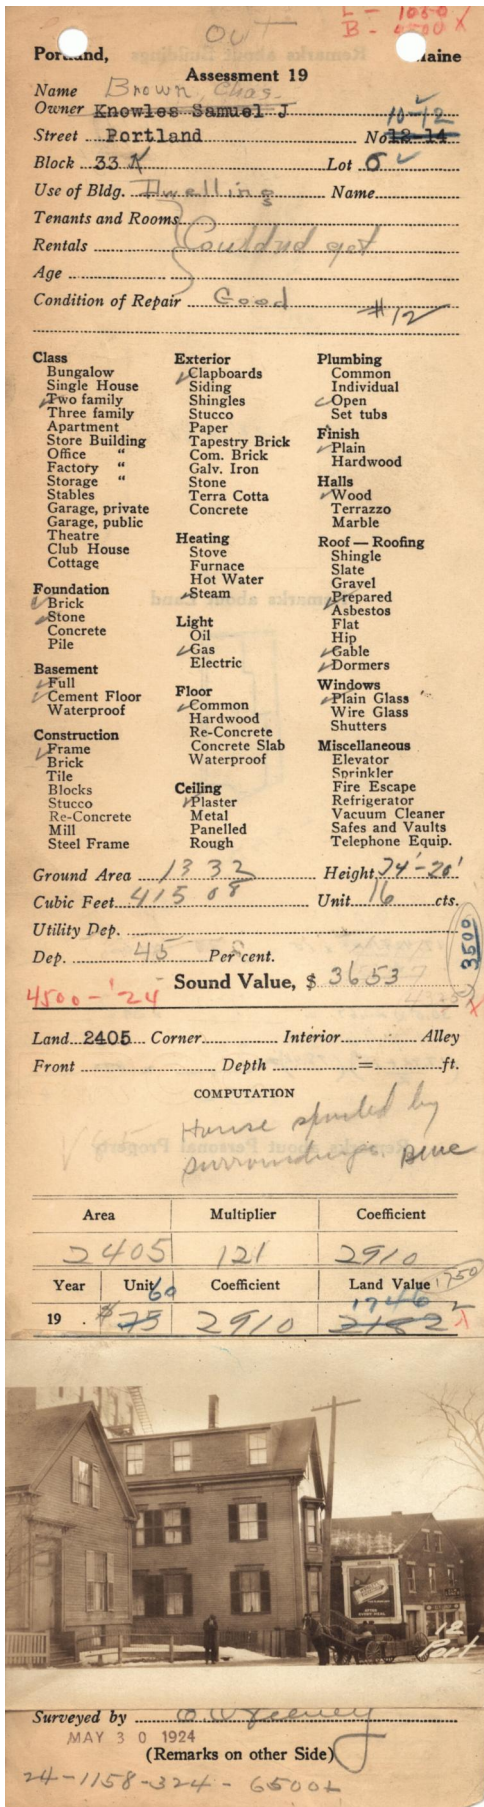 OUT
L - 1050
B - 4500 X
Portland, Maine
Assessment 19
Name Brown, Chas.
Owner Knowles Samuel J 10-12
Street Portland No 12-14
Block 33 K Lot 6
Use of Bldg. Dwelling Name
Tenants and Rooms
Rentals Couldnd get
Age
Condition of Repair Good #12
Class
Bungalow
Single House
Two family
Three family
Apartment
Store Building
Office "
Factory "
Storage "
Stables
Garage, private
Garage, public
Theatre
Club House
Cottage
Foundation
Brick
Stone
Concrete
Pile
Basement
Full
Cement Floor
Waterproof
Construction
Frame
Brick
Tile
Blocks
Stucco
Re-Concrete
Mill
Steel Frame
Exterior
Clapboards
Siding
Shingles
Stucco
Paper
Tapestry Brick
Com. Brick
Galv. Iron
Stone
Terra Cotta
Concrete
Heating
Stove
Furnace
Hot Water
Steam
Light
Oil
Gas
Electric
Floor
Common
Hardwood
Re-Concrete
Concrete Slab
Waterproof
Ceiling
Plaster
Metal
Panelled
Rough
Plumbing
Common
Individual
Open
Set tubs
Finish
Plain
Hardwood
Halls
Wood
Terrazzo
Marble
Roof — Roofing
Shingle
Slate
Gravel
Prepared
Asbestos
Flat
Hip
Gable
Dormers
Windows
Plain Glass
Wire Glass
Shutters
Miscellaneous
Elevator
Sprinkler
Fire Escape
Refrigerator
Vacuum Cleaner
Safes and Vaults
Telephone Equip.
Ground Area 1332 Height 34'-20'
Cubic Feet 41508 Unit 16 cts.
Utility Dep.
Dep. 45 Per cent.
3500
Sound Value, $ 3653
4500-'24
Land 2405 Corner Interior Alley
Front Depth = ft.
COMPUTATION
House spoiled by
surroundings
Area Multiplier Coefficient
2405 121 2910
Year Unit Coefficient Land Value 1750
60 1746
19 . $ 75 2910 2182
12
Port
Surveyed by
MAY 30 1924
(Remarks on other Side)
24-1158-324-6500